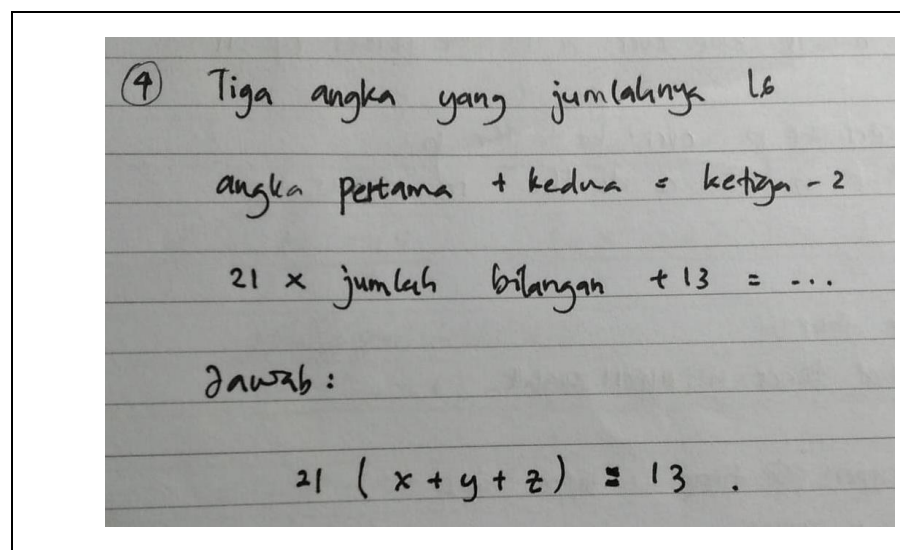 ④ Tiga angka yang jumlahnya 16
angka pertama + kedua = ketiga - 2
21 x jumlah bilangan + 13 = ...
Jawab :
21 ( x + y + z ) = 13 .